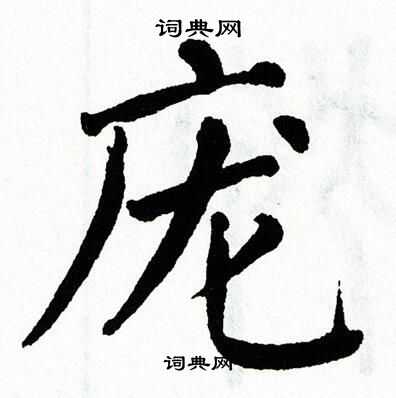 词典网
庞
词典网